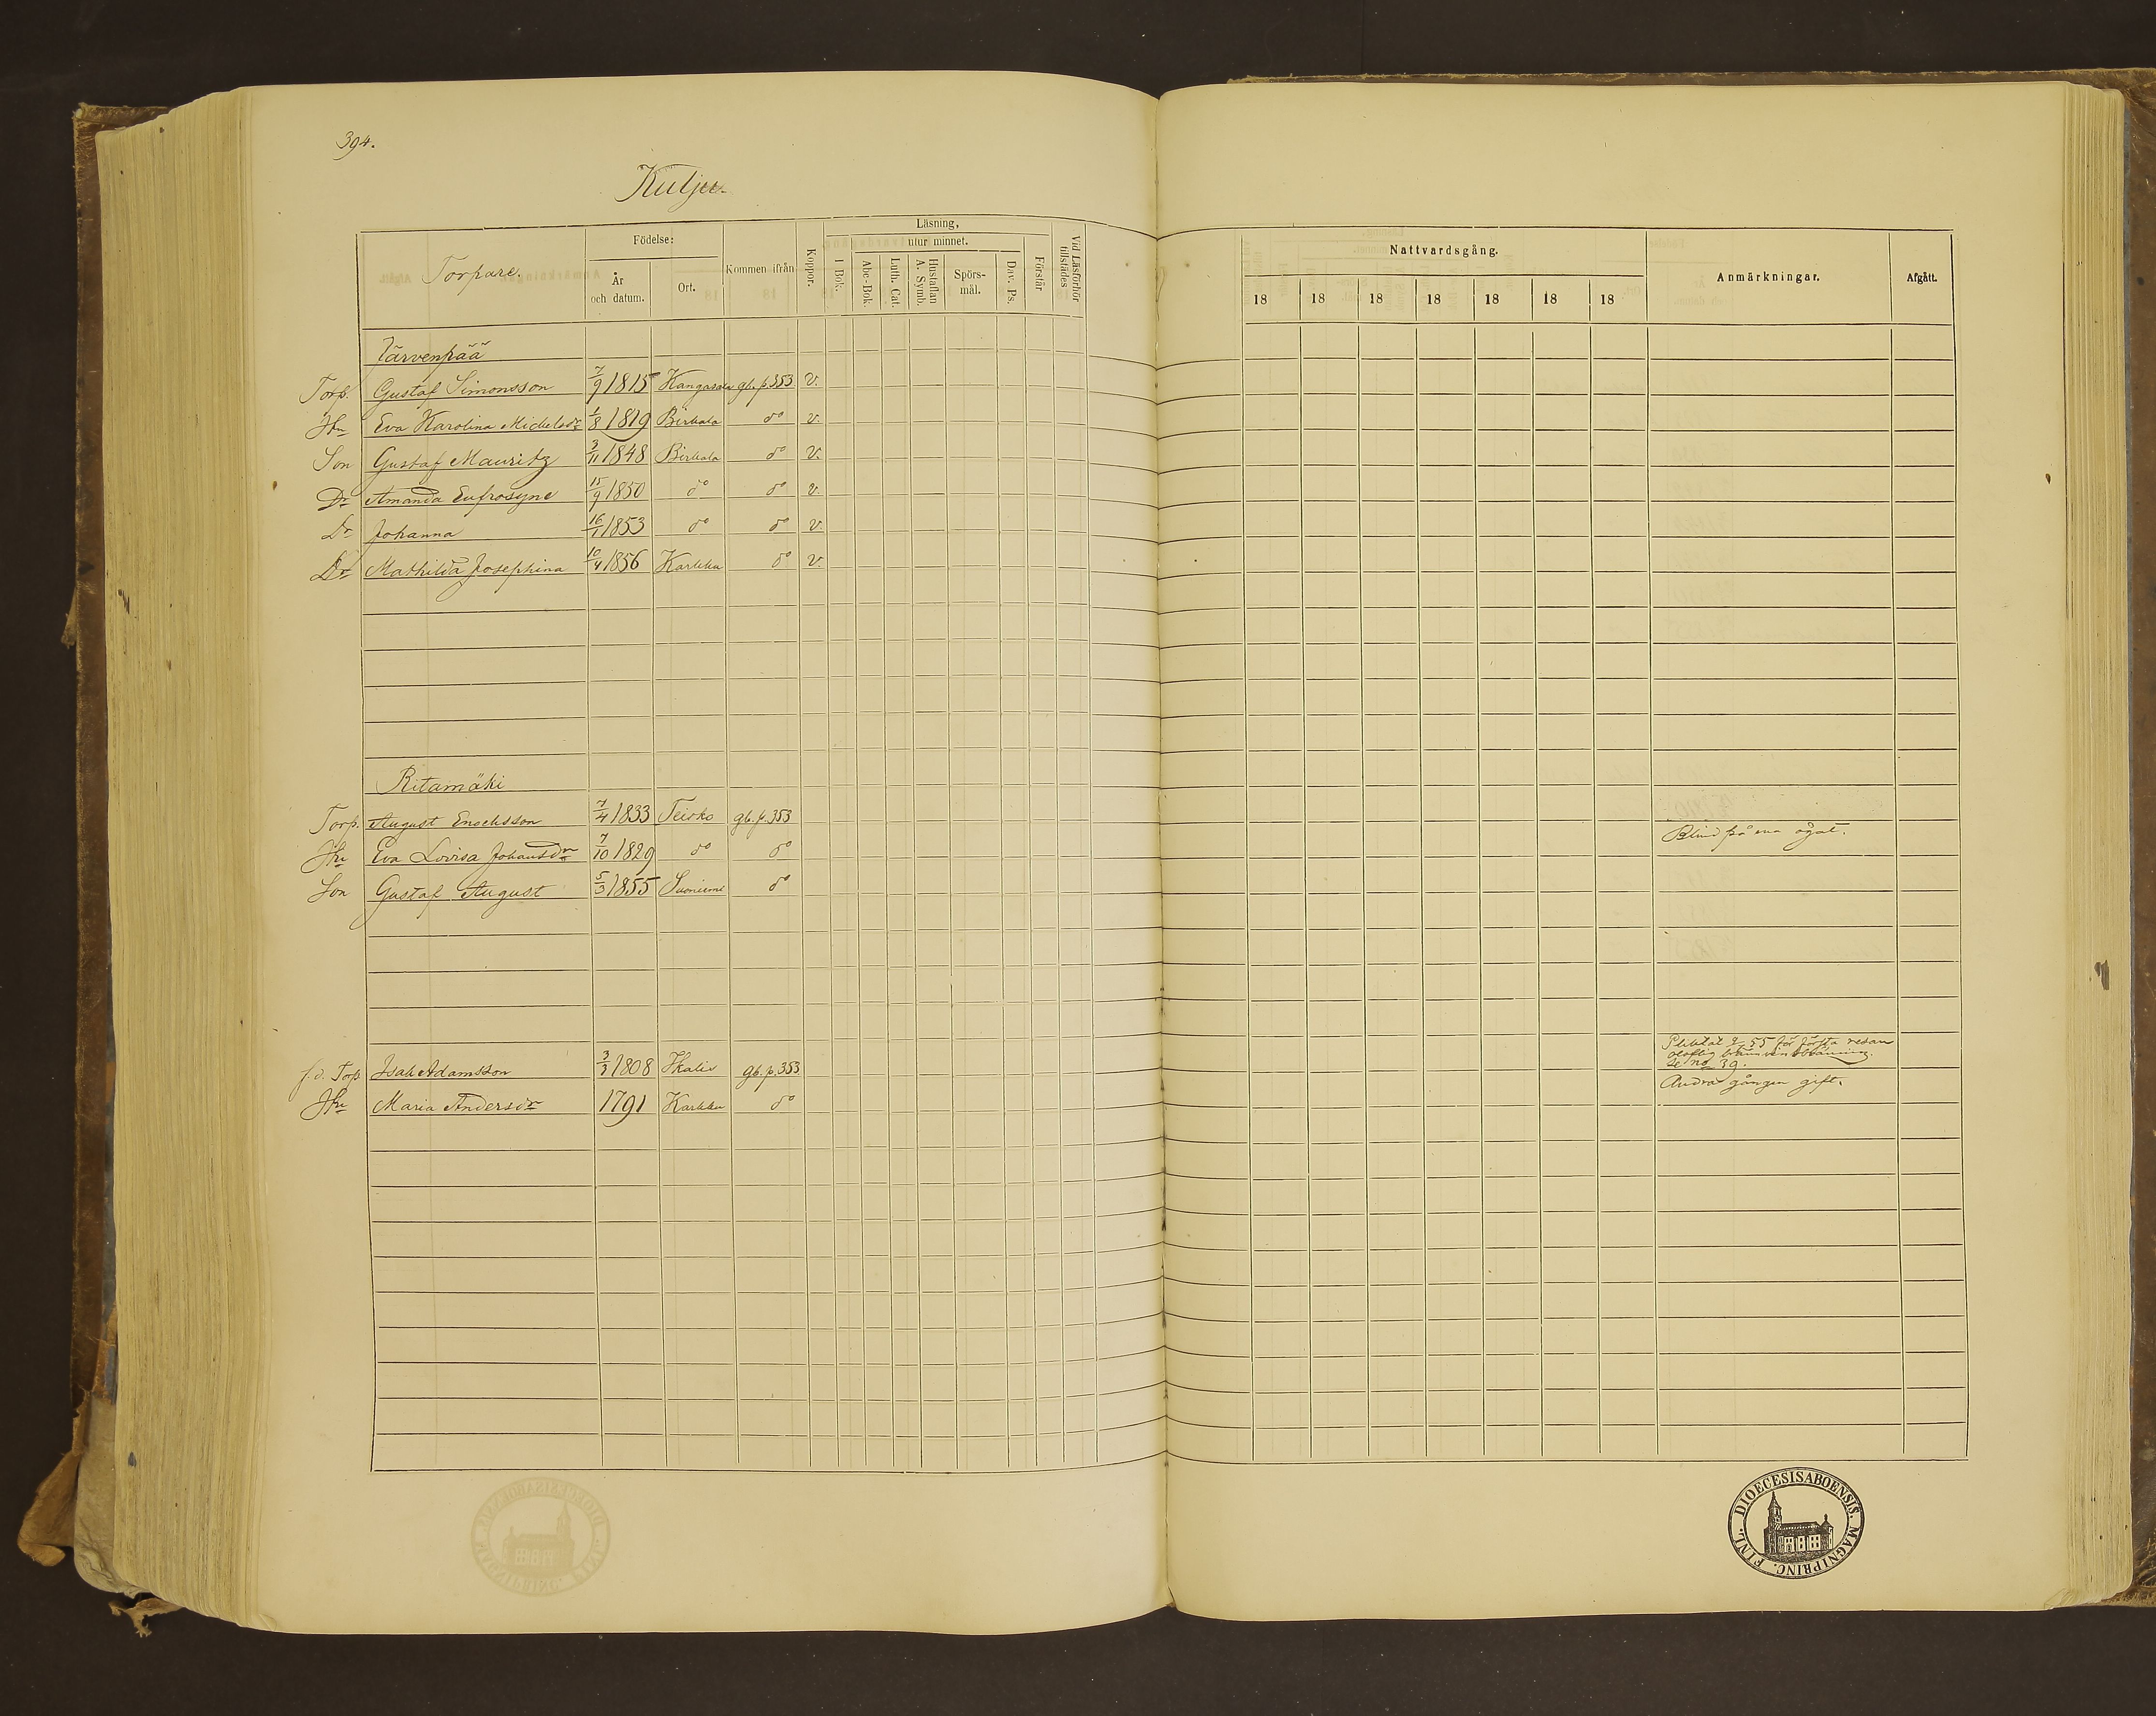 394.
Kulju.
Torpare.
Födelse:
År och datum.
Ort.
Kommen ifrån
Koppor.
Läsning,
utur minnet.
I Bok.
Abc-Bok.
Luth. Cat.
Hustaflan A. Symb.
Spörs-mål.
Dav. Ps.
Förstår
Vid Läsförhör tillstädes
Nattvardsgång.
18 18 18 18 18 18 18
Anmärkningar.
Afgått.
Järvenpää
Torp. Gustaf Simonsson 7/9 1815 Kangasala gb. p. 353 v.
Hu Eva Karolina Michelsdr 1/8 1819 Birkala do v.
Son Gustaf Mauritz 3/11 1848 Birkala do v.
Dr Amanda Eufrosyne 15/9 1850 do do v.
Dr Johanna 16/1 1853 do do v.
Dr Mathilda Josephina 10/4 1856 Karkku do v.
Ritamäki
Torp. August Enochsson 7/4 1833 Teisko gb. p. 353
Blind på ena ögat.
Hu Eva Lovisa Johansdr 7/10 1829 do do
Son Gustaf August 5/3 1855 Suoniemi do
f.d. Torp Isak Adamsson 3/3 1808 Ikalis gb. p. 353
55 för första resan
se no 39.
Hu Maria Andersdr 1791 Karkku do
Andra gången gift.
FINL. DIOECESISABOENSIS. MAGNIPRINC.